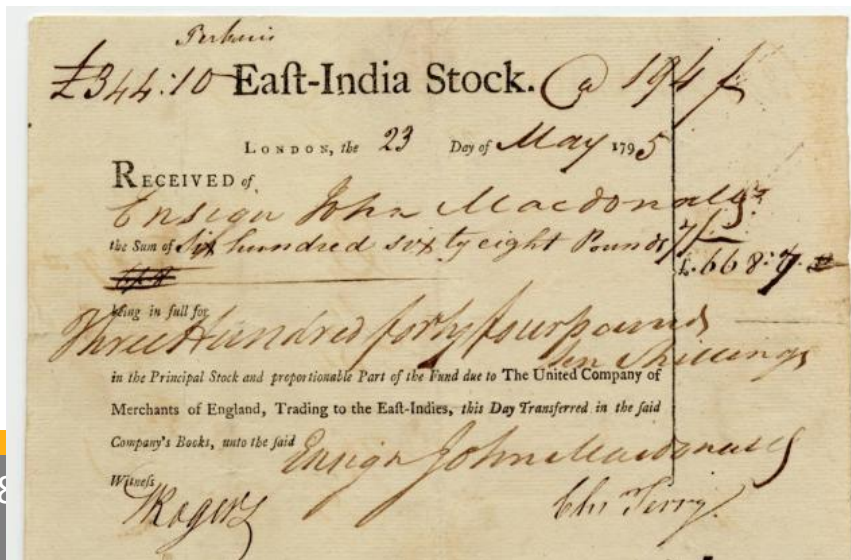 Perkins
£344:10 Eaſt-India Stock. @ 194
LONDON, the 23 Day of May 1795
RECEIVED of
Ensign John Macdonald
the Sum of Six hundred sixty eight Pounds 7/
£.668:7.
being in full for
Three Hundred forty four pounds
ten Shillings
in the Principal Stock and proportionable Part of the Fund due to The United Company of
Merchants of England, Trading to the Eaſt-Indies, this Day Transferred in the ſaid
Company's Books, unto the ſaid Ensign John Macdonald
Witneſs
Rogers Chr Terry.
8